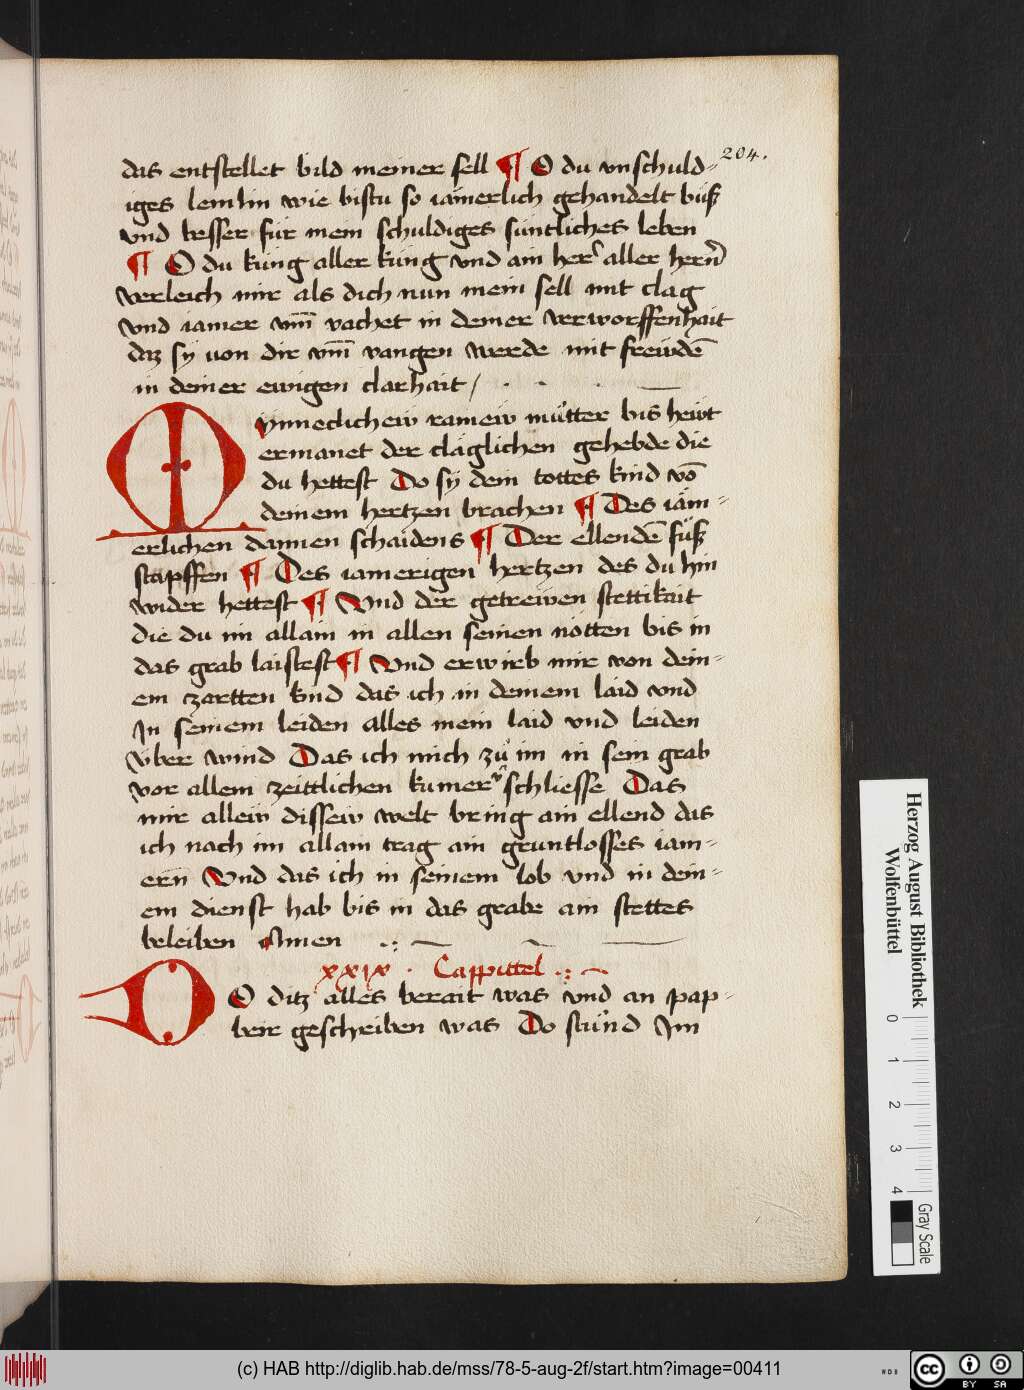 204.
das entstellet bild meiner sell ¶ O du vnschuld-
iges lemlin wie bistu so iämerlich gehandelt büß
vnd besser für mein schuldiges süntliches leben
¶ O du küng aller küng vnd ain her aller hern̄
verleich mir als dich nun mein sell mit clag
vnd iamer vm̄ vachet in deiner verworffenhait
daz sÿ von dir vm̄ vangen werde mit frewdē
in deiner ewigen clarhait /
Mynneclichew ramew mu̇tter bis hewt
ermanet der cläglichen gehebde die
du hettest Do sÿ dein tottes kind vō
deinem hertzen brachen ¶ Des iäm-
erlichen dannen schaidens ¶ Der ellendē fu̇ß
stapffen ¶ Des iamerigen hertzen des du hin
wider hettest ¶ Vnd der getrewen stettikait
die du im allain in allen seinen nötten bis in
das grab laistest ¶ Vnd erwirb mir von dein-
em zartten kind das ich in deinem laid vnd
In seinem leiden alles mein laid vnd leiden
v̈ber wind Das ich mich zu̇ im in sein grab
vor allem zeittlichen kumer v̓schliesse Das
mir allew dissew welt bring ain ellend das
ich nach im allain trag ain gruntlosses iam-
ern̄ Vnd das ich in seinem lob vnd in dein-
em dienst hab bis in das grabe ain stettes
beleiben Amen
xxix · Cappittel
DO ditz alles berait was vnd an pap-
beir geschreiben was Do stu̇nd Im
Herzog August Bibliothek
Wolfenbüttel
0 1 2 3 4
Gray Scale
(c) HAB http://diglib.hab.de/mss/78-5-aug-2f/start.htm?image=00411
cc BY SA